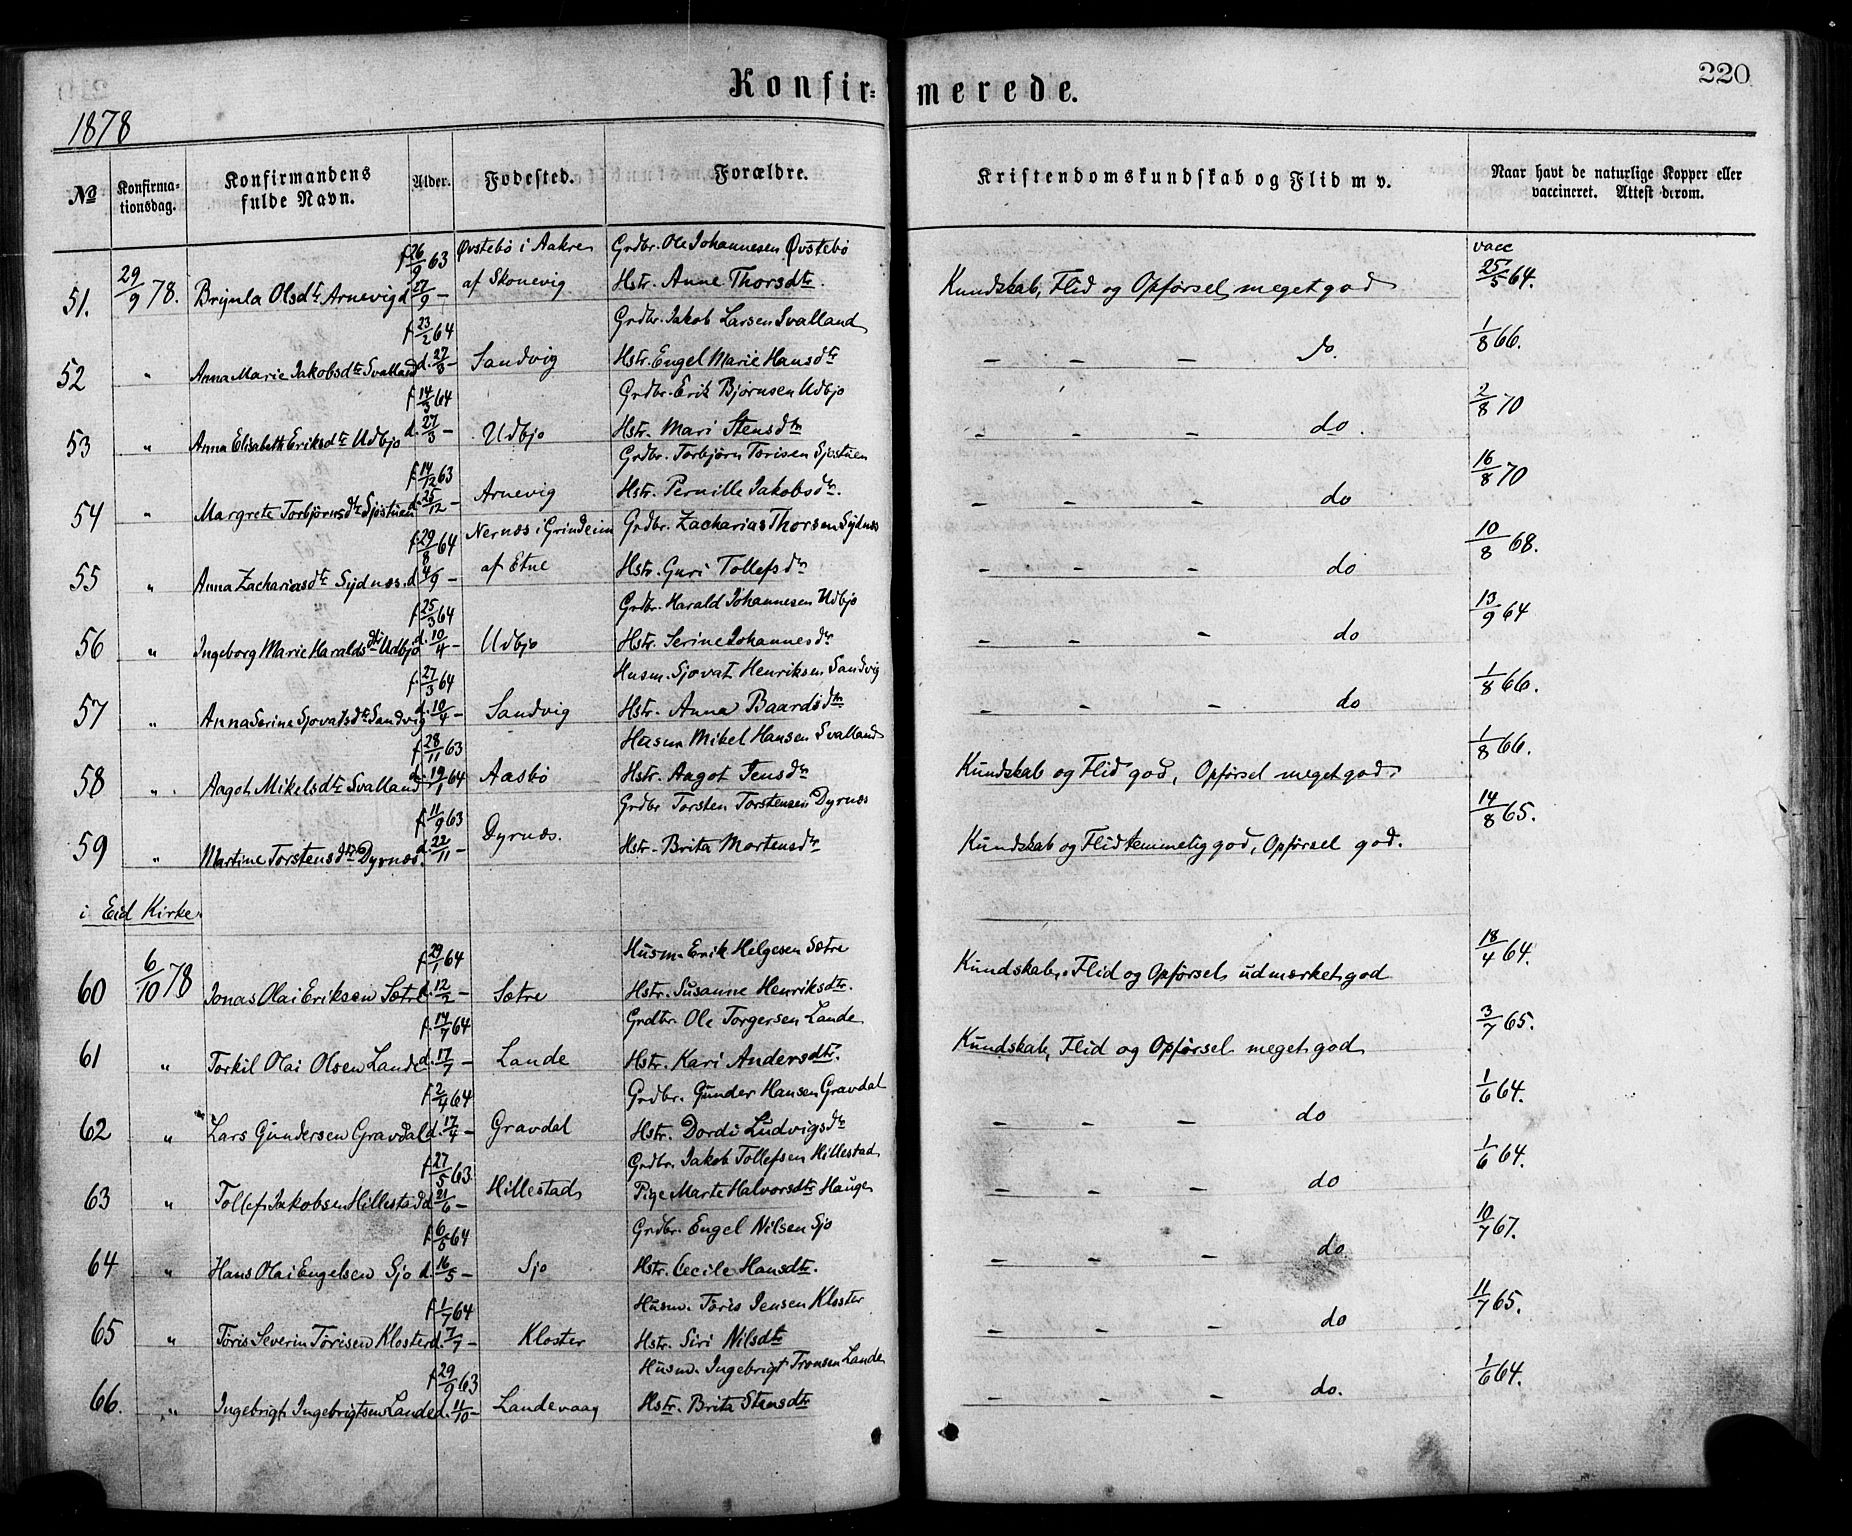 Konfirmerede.
220
1878
No
Konfirmationsdag.
Konfirmandens fulde Navn.
Alder.
Fødested.
Forældre.
Kristendomskundskab og Flid m v.
Naar havt de naturlige Kopper eller vaccineret. Attest derom.
f 26/9 63 Øvstebø i Aakre Grdbr. Ole Johannesen Øvstebø vacc
51. 29/9 78. Brynla Olsdtr Arnevig d 27/9 – af Skonevig Hstr. Anne Thorsdtr. Kundskab, Flid og Opførsel meget god 25/5 64.
f 23/2 64 Grdbr. Jakob Larsen Svalland
52 " Anna Marie Jakobsdtr Svalland d. 27/3 – Sandvig Hstr. Engel Marie Hansdtr – – – do. 1/8 66.
f 14/3 64 Grdbr. Erik Bjørnsen Udbjo
53 " Anna Elisabeth Eriksdtr Udbjo d. 27/3 – Udbjo Hstr. Mari Stensdtr – – – do. 2/8 70
f 14/12 63 Grdbr. Torbjörn Torisen Sjostuen
54 " Margrete Torbjörnsdtr Sjostuen d. 25/12 – Arnevig Hstr. Pernille Jakobsdtr. – – – do 16/8 70
f 29/8 64 Nernæs i Grindeim Grdbr. Zacharias Thorsen Sydnæs
55 " Anna Zachariasdtr Sydnæs. d 4/9 – af Etne Hstr. Guri Tollefsdtr – – – do 10/8 68.
f 25/3 64 Grdbr. Harald Johannesen Udbjo
56 " Ingeborg Marie Haraldsdtr Udbjo d. 10/4 – Udbjo Hstr. Serine Johannesdtr – – – do 13/9 64
f. 27/3 64 Husm. Sjovat Henriksen Sandvig
57 " Anna Serine Sjovatsdtr Sandvig d. 10/4 – Sandvig Hstr. Anna Baardsdtr – – – do 1/8 66.
f 28/11 63 Husm Mikel Hansen Svalland
58 " Aagot Mikelsdtr Svalland d. 19/1 64 Aasbø Hstr. Aagot Jensdtr Kundskab og Flid god, Opførsel meget god. 1/8 66.
f 11/9 63 Grdbr Torsten Torstensen Dyrnæs
59 " Martine Torstensdtr Dyrnæs. d. 22/11 – Dyrnæs. Hstr. Brita Mortensdtr Kundskab og Flid temmelig god, Opførsel god. 14/8 65.
i Eid Kirke.
f 29/1 64 Husm. Erik Helgesen Sætre
60 6/10 78 Jonas Olai Eriksen Sætre d. 12/2 – Sætre Hstr. Susanne Henriksdtr. Kundskab, Flid og Opførsel udmærket god 18/4 64.
f. 14/7 64 Grdbr. Ole Torgersen Lande
61 " Torkil Olai Olsen Lande d. 17/7 – Lande Hstr. Kari Andersdtr. Kundskab, Flid og Opførsel meget god 3/7 65.
f 2/4 64 Grdbr. Gunder Hansen Gravdal
62 " Lars Gundersen Gravdal d. 17/4 – Gravdal Hstr. Dordi Ludvigsdtr – – – do 1/6 64.
f 27/5 63 Grdbr. Jakob Tollefsen Hillestad
63 " Tollef Jakobsen Hillestad d 21/6 – Hillestad Pige Marte Halvorsdtr Hauge – – – do 1/6 64.
f. 6/5 64 Grdbr. Engel Nilsen Sjo
64 " Hans Olai Engelsen Sjo d. 16/5 – Sjo Hstr. Cecile Hansdtr. – – – do 10/7 67.
f 1/7 64 Husm. Tøris Jensen Kloster
65 " Tøris Severin Tørisen Kloster d. 7/7 – Kloster Hstr. Siri Nilsdtr – – – do 11/7 65.
f 29/9 63 Husm. Ingebrigt Tronsen Lande
66. " Ingebrigt Ingebrigtsen Lande d. 11/10 – Landevaag Hstr. Brita Stensdtr – – – do. 1/6 64.